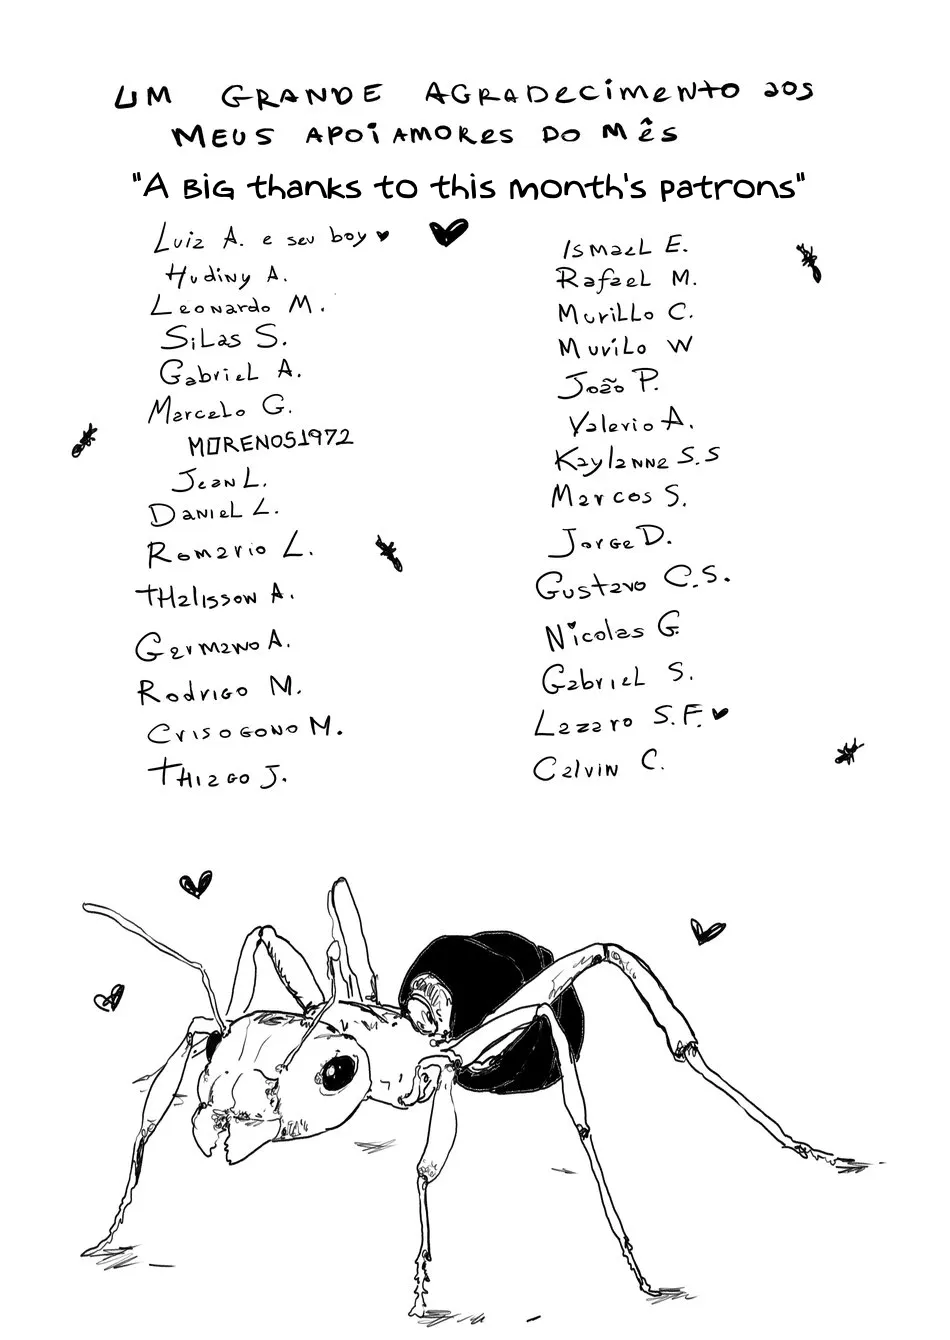 UM GRANDE AGRADECIMENTO AOS
MEUS APOIAMORES DO MÊS
"A BIG thanks to this month's patrons"
Luiz A. e seu boy
Hudiny A.
Leonardo M.
Silas S.
Gabriel A.
Marcelo G.
MORENOS1972
Jean L.
Daniel L.
Romario L.
THalisson A.
Germano A.
Rodrigo M.
Crisogono M.
THiago J.
Ismael E.
Rafael M.
Murillo C.
Murilo W
João P.
Valerio A.
Kaylanne S.S
Marcos S.
Jorge D.
Gustavo C.S.
Nicolas G
Gabriel S.
Lazaro S.F.
Calvin C.